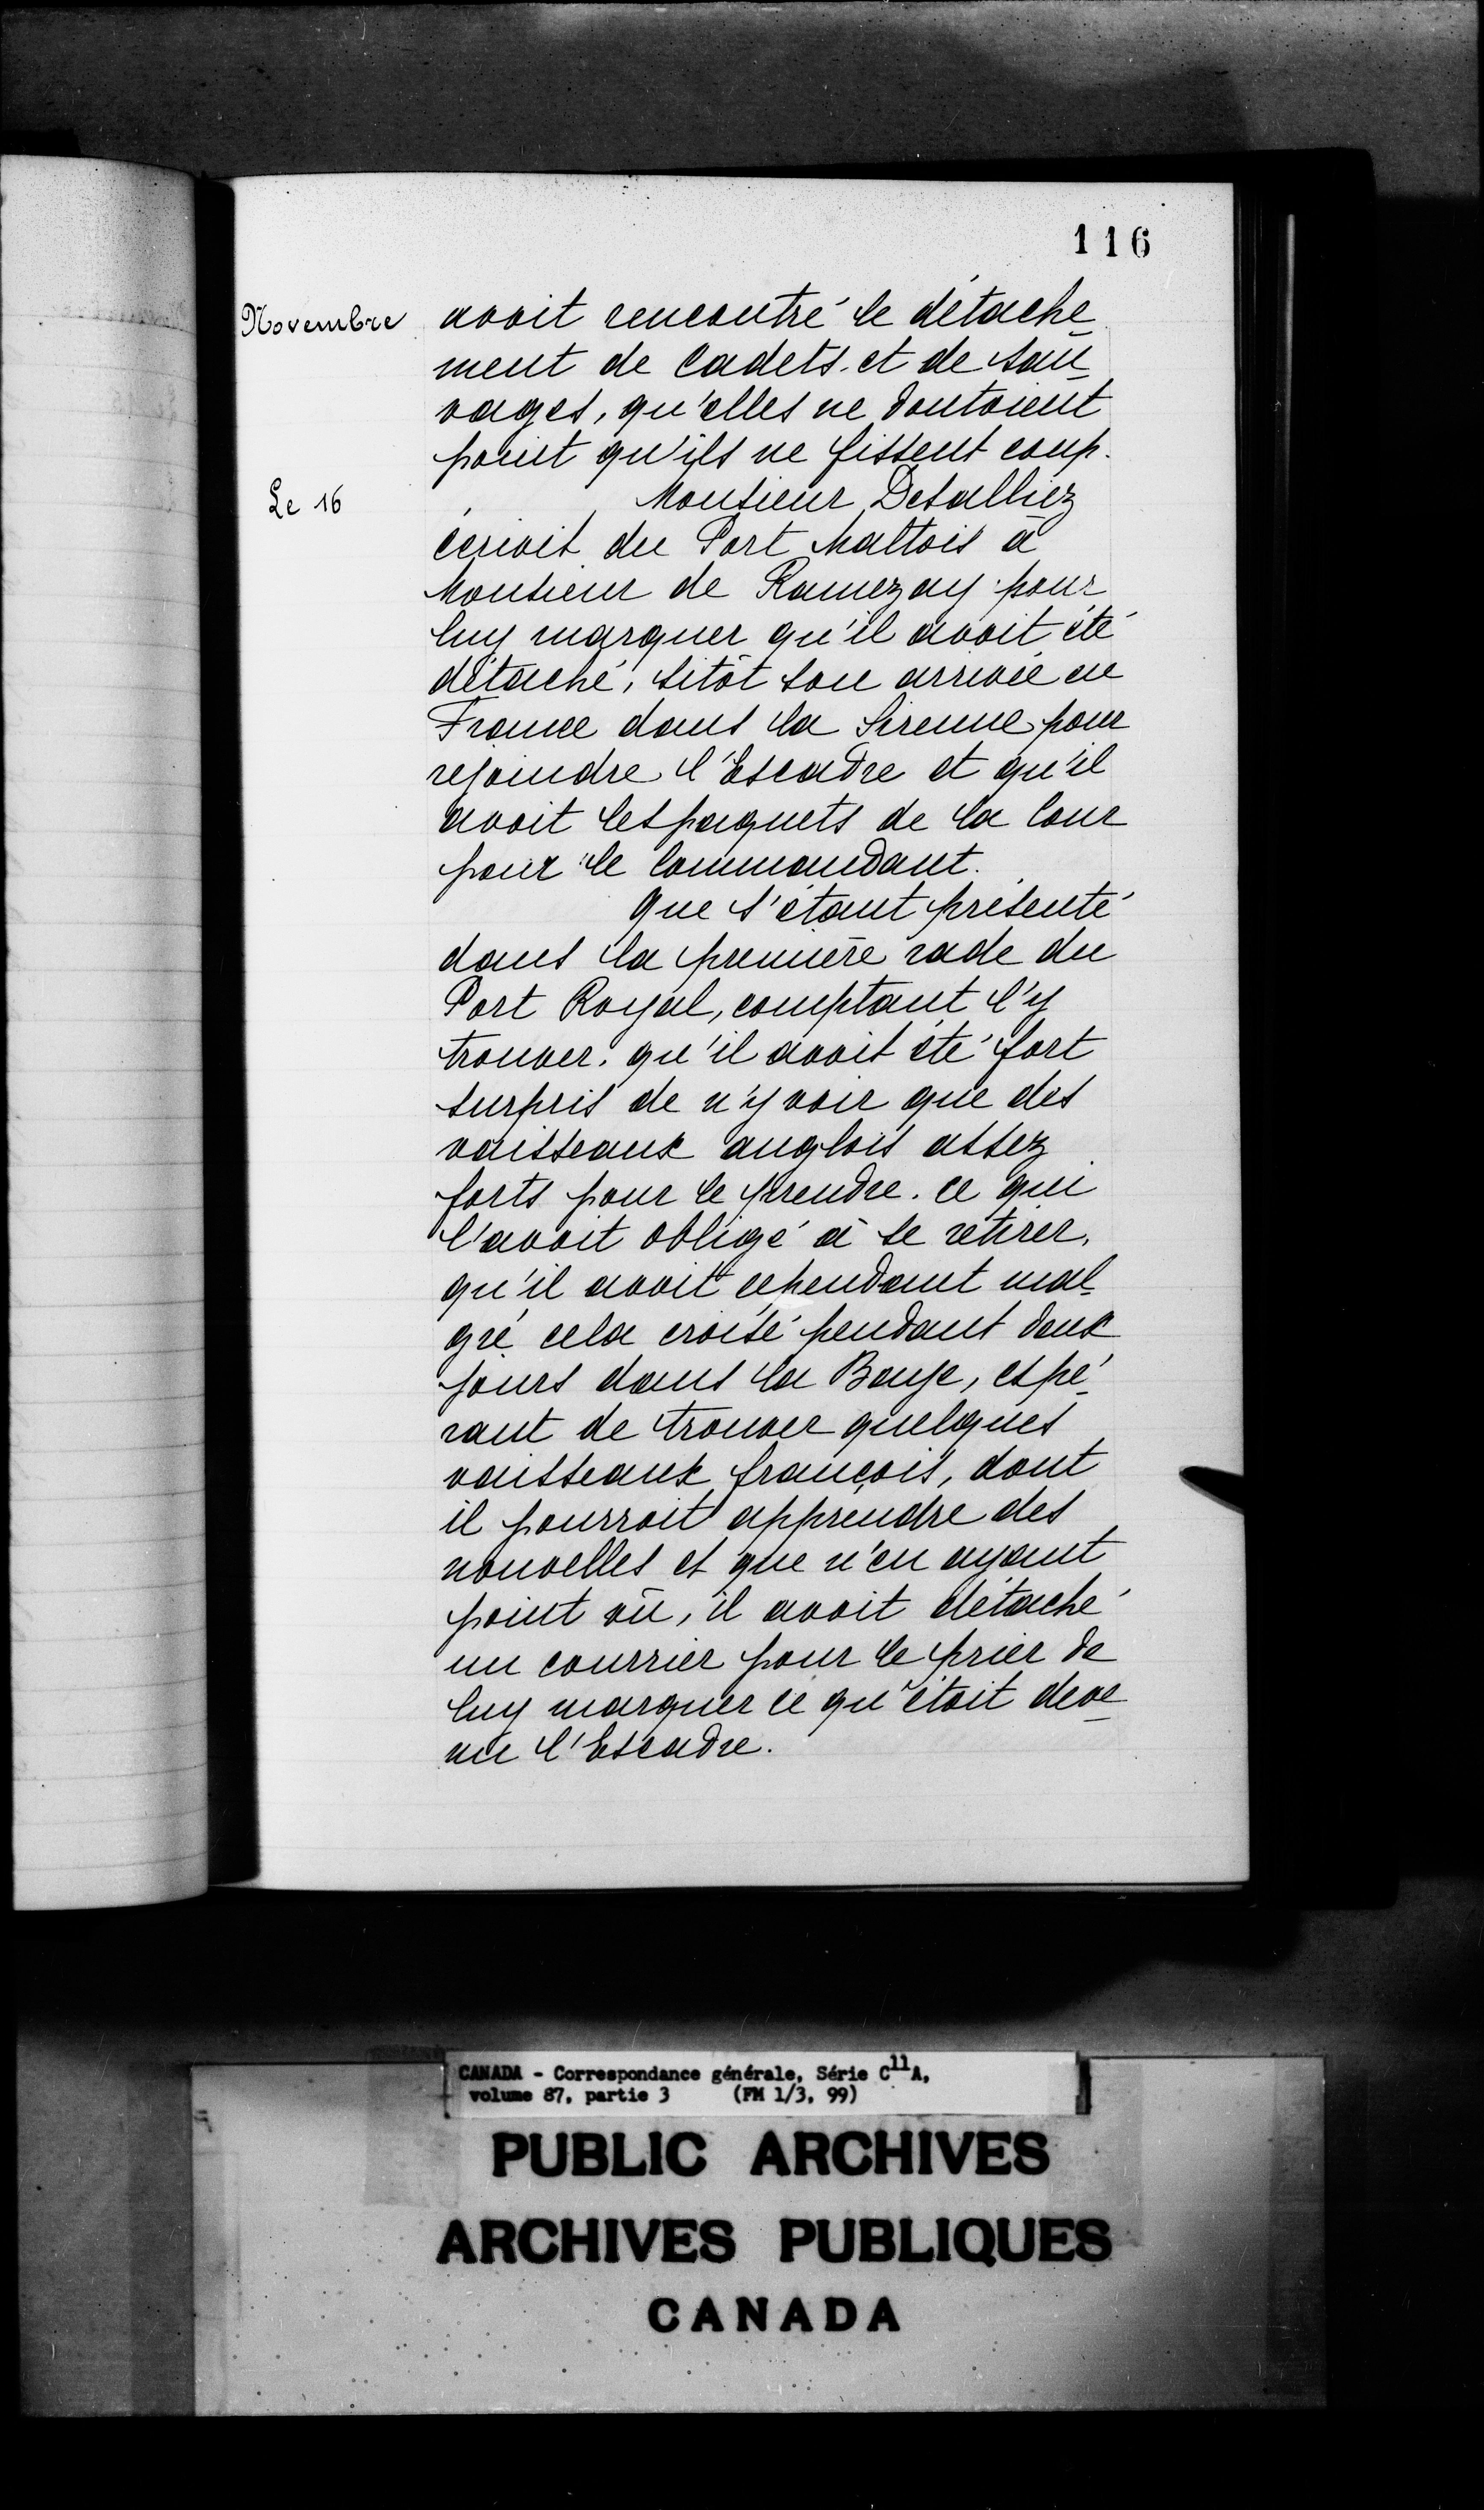 116
Novembre
avoit rencontré le détache
ment de Cadets et de sau
vages, qu'elles ne doutoient
point qu'ils ne fissent coup.
Le 16
Monsieur Desalliez
écrivit du Port Maltois à
Monsieur de Ramezay pour
luy marquer qu'il avoit été
détaché, sitôt son arrivée en
France dans la Sirenne pour
rejoindre l'Escadre et qu'il
avoit les paquets de la Cour
pour le Commandant.
que s'étant présenté
dans la première rade du
Port Royal, comptant l'y
trouver. qu'il avoit été fort
surpris de n'y voir que des
vaisseaux anglois assez
forts pour le prendre. ce qui
l'avoit obligé à se retirer.
qu'il avoit cependant mal
gré cela croisé pendant deux
jours dans la Baye, espé
rant de trouver quelques
vaisseaux françois, dont
il pourroit apprendre des
nouvelles et que n'en ayant
point vû, il avoit détaché
un courrier pour le prier de
luy marquer ce qu'étoit deve
nu l'Escadre.
CANADA - Correspondance générale, Série C11A,
volume 87, partie 3 (FM 1/3, 99)
PUBLIC ARCHIVES
ARCHIVES PUBLIQUES
CANADA